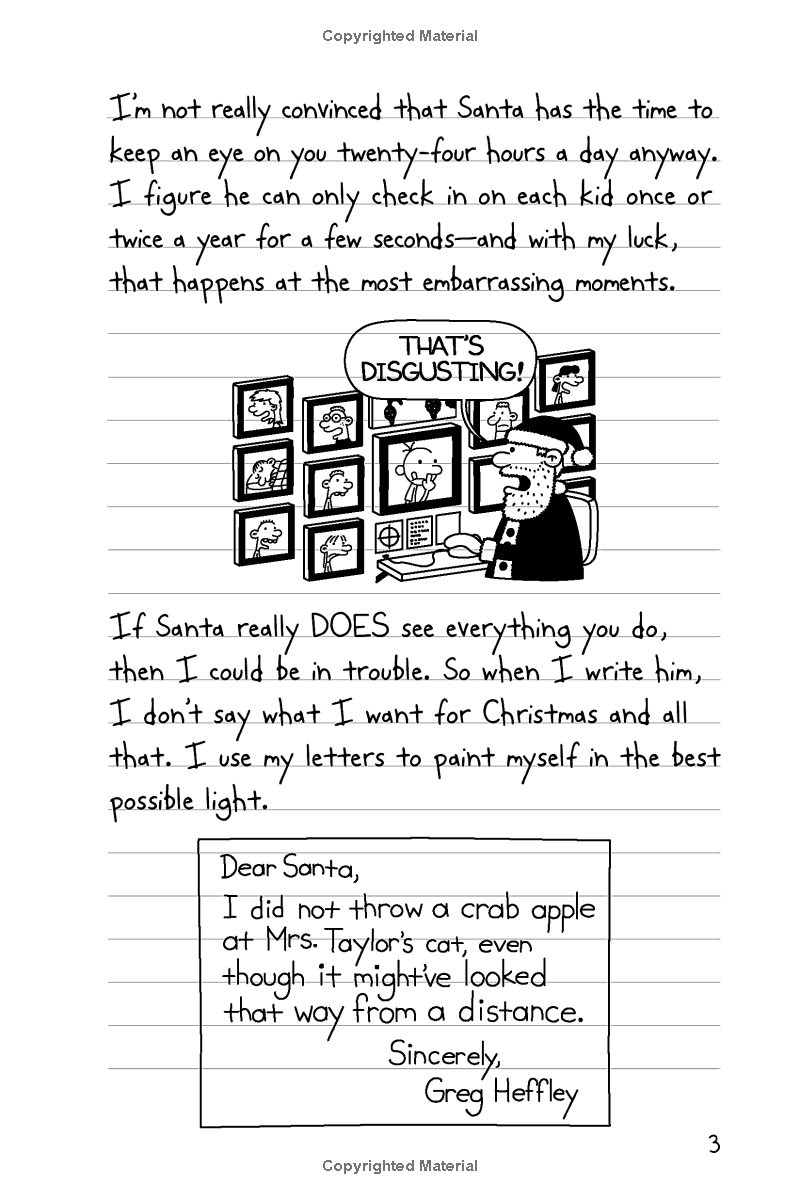 Copyrighted Material
I'm not really convinced that Santa has the time to
keep an eye on you twenty-four hours a day anyway.
I figure he can only check in on each kid once or
twice a year for a few seconds—and with my luck,
that happens at the most embarrassing moments.
THAT'S
DISGUSTING!
If Santa really DOES see everything you do,
then I could be in trouble. So when I write him,
I don't say what I want for Christmas and all
that. I use my letters to paint myself in the best
possible light.
Dear Santa,
I did not throw a crab apple
at Mrs. Taylor's cat, even
though it might've looked
that way from a distance.
Sincerely,
Greg Heffley
3
Copyrighted Material